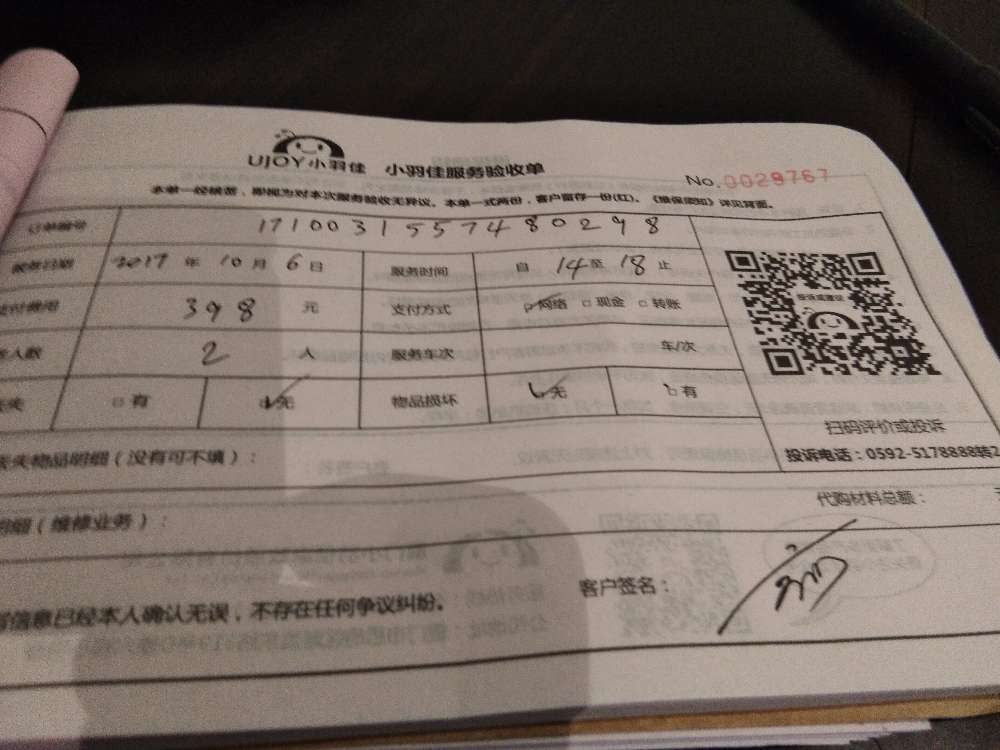 UJOY小羽佳 小羽佳服务验收单
No.0029767
本单一经核签，即视为对本次服务验收无异议。本单一式两份，客户留存一份(红)。《维保须知》详见背面。
订单编号 1710031557480298
服务日期 2017 年 10 月 6 日 服务时间 自 14 至 18 止
支付费用 398 元 支付方式 网络 现金 转账
人数 2 人 服务车次 车/次
失 有 无 物品损坏 无 有
投诉或建议
扫码评价或投诉
投诉电话：0592-5178888转2
失物品明细（没有可不填）：
代购材料总额：
明细（维修业务）：
信息已经本人确认无误，不存在任何争议纠纷。
客户签名：